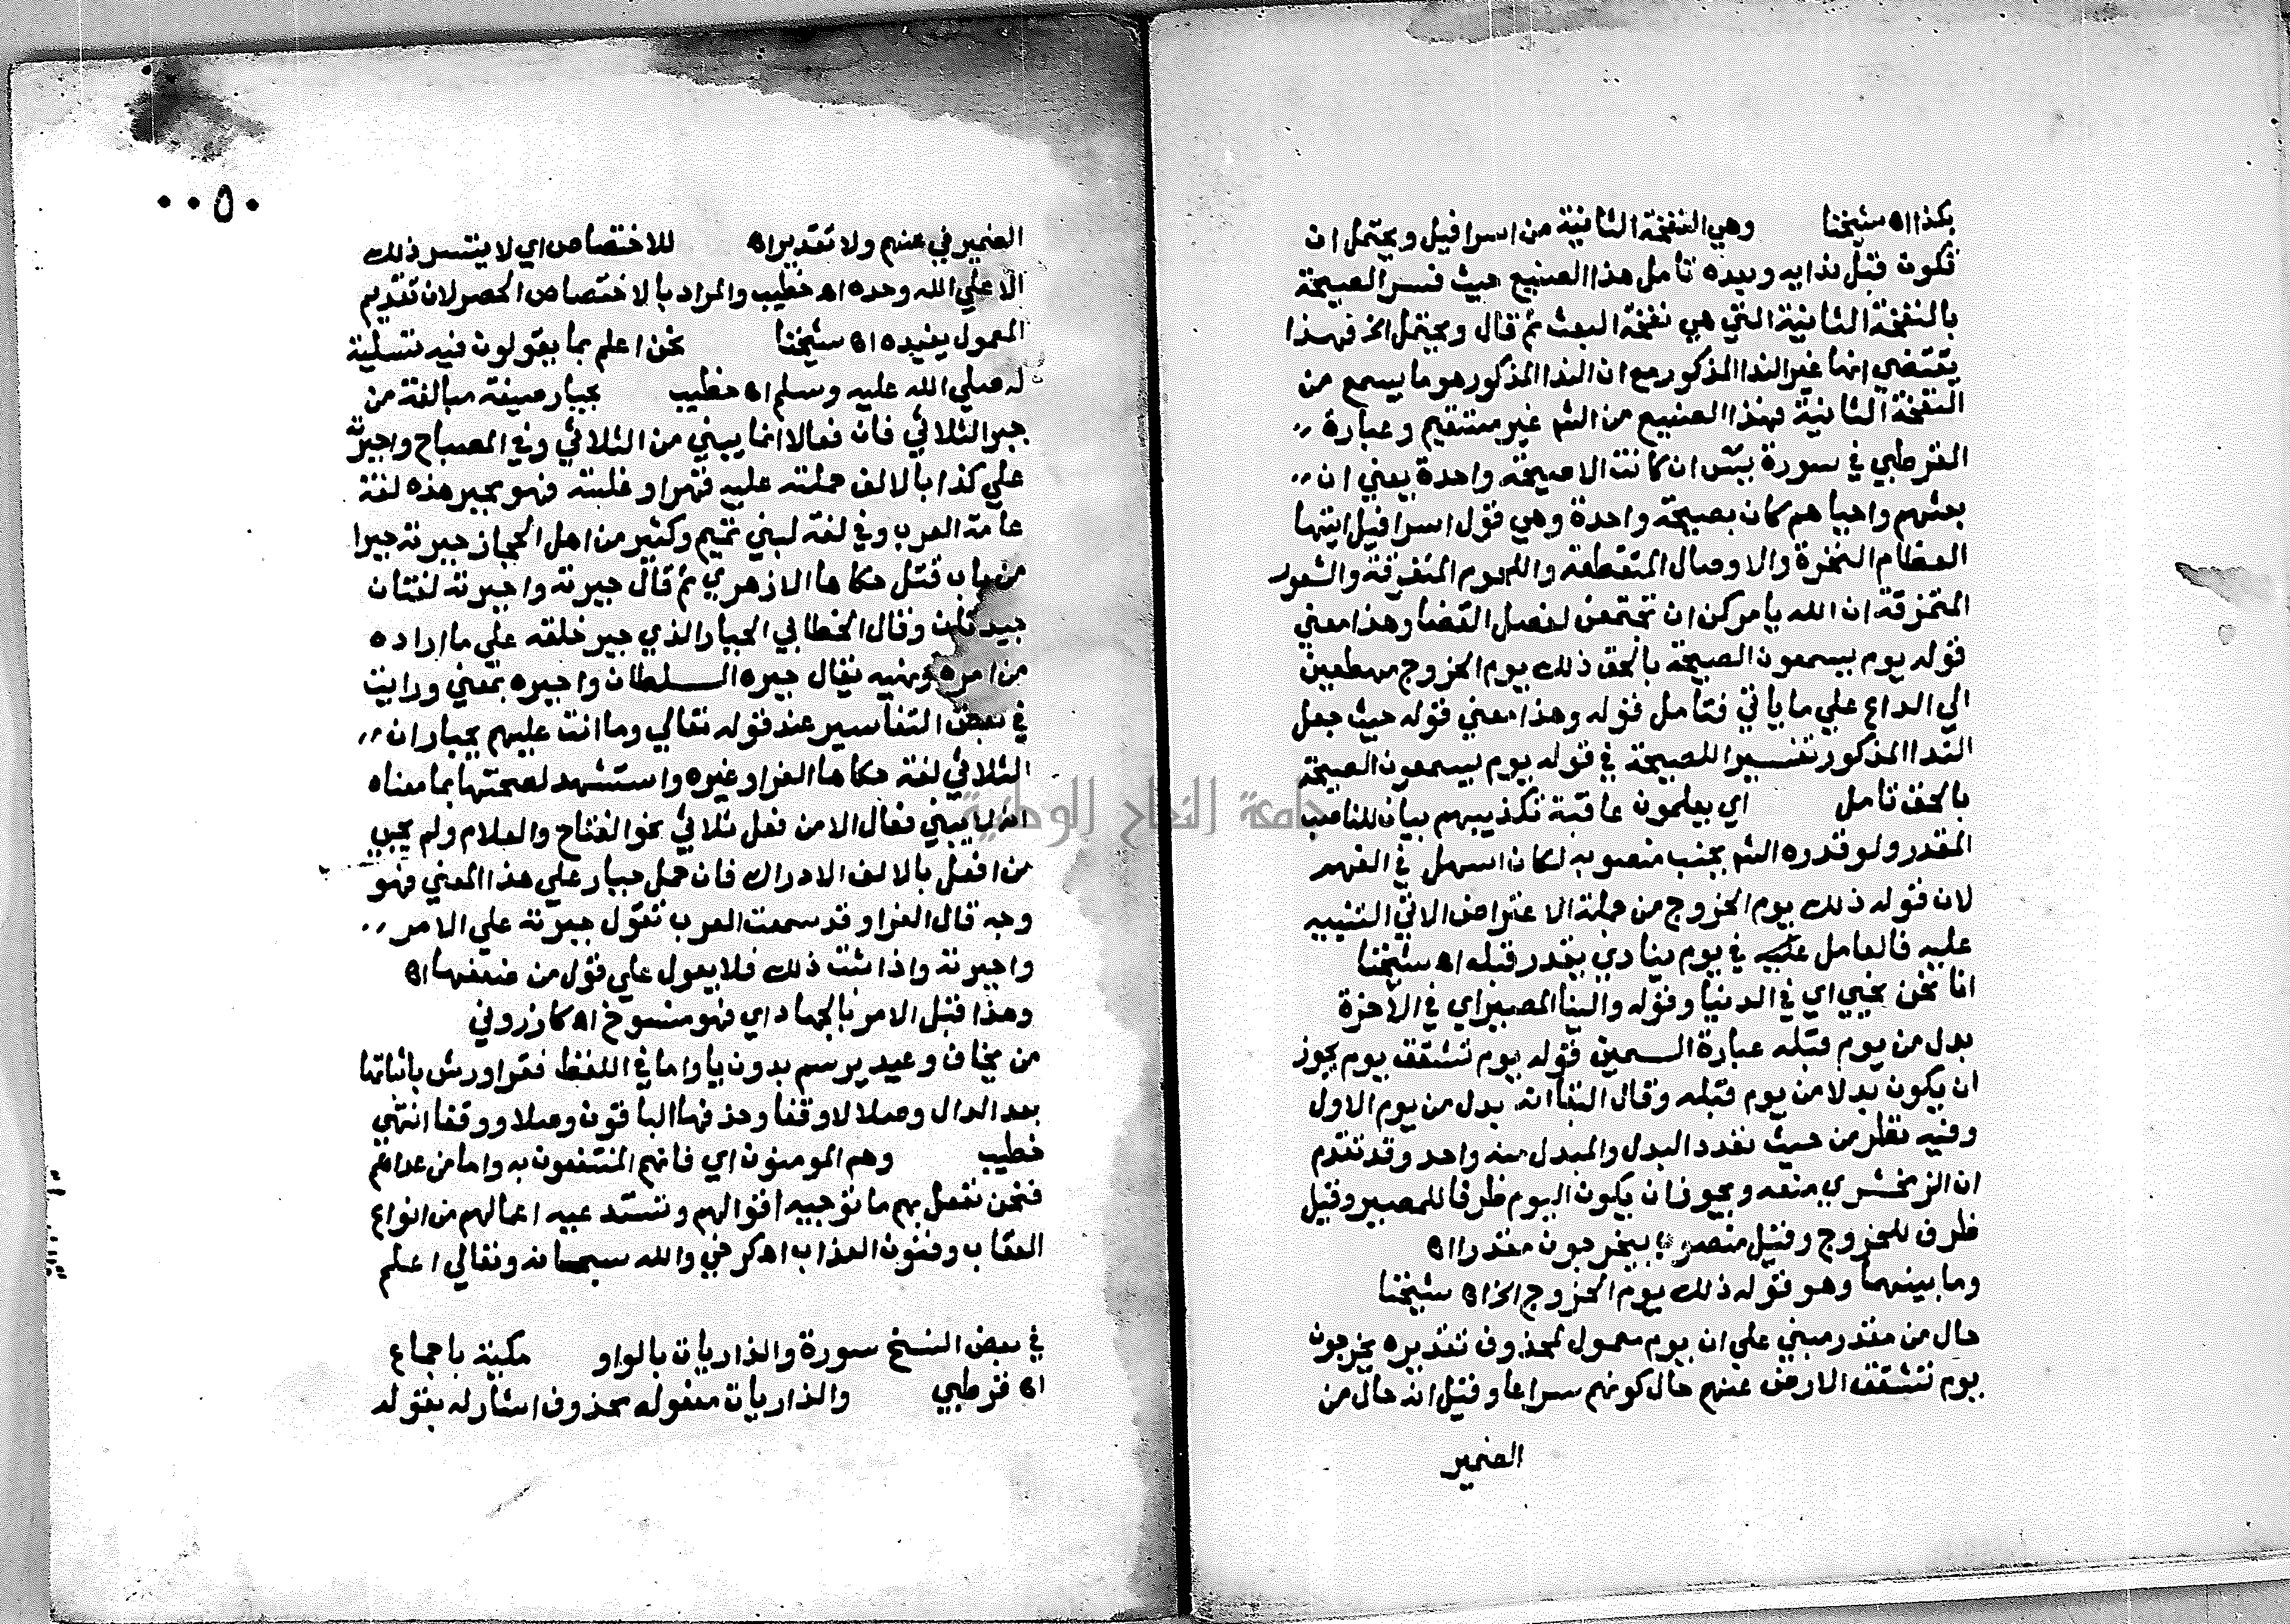 بكذا اه شيخنا وهي النفخة الثانية من اسرافيل ويحتمل ان
تكون قبل ندايه وبعده تأمل هذا الصنيع حيث فسر الصيحة
بالنفخة الثانية التي هي نفخة البعث ثم قال ويحتمل الخ فهذا
يقتضي انها غير الندا المذكور مع ان الندا المذكور هو ما يسمع من
النفخة الثانية فهذا الصنيع من الش غير مستقيم وعبارة
القرطبي في سورة يس ان كانت الا صيحة واحدة يعني ان
بعثهم واحياهم كان بصيحة واحدة وهي قول اسرافيل ايتها
العظام النخرة والاوصال المتقطعة واللحوم المتفرقة والشعور
المتمزقة ان الله يامركن ان تجتمعن لفصل القضا وهذا معني
قوله يوم يسمعون الصيحة بالحق ذلك يوم الخروج مهطعين
الي الداع علي ما ياتي فتأمل قوله وهذا معني قوله حيث جعل
الندا المذكور تفسيرا للصيحة في قوله يوم يسمعون الصيحة
بالحق تامل اي يعلمون عاقبة تكذيبهم بيان للناصب
المقدر ولو قدره الش بجنب منصوبه لكان اسهل في الفهم
لان قوله ذلك يوم الخروج من جملة الاعتراض الاتي التنبيه
عليه فالعامل عليه في يوم ينادي يقدر قبله اه شيخنا
انا نحن نحيي اي في الدنيا وقوله والينا المصير اي في الآخرة
بدل من يوم قبله عبارة السمين قوله يوم تشقق يوم يجوز
ان يكون بدلا من يوم قبله وقال ابو البقا انه بدل من يوم الاول
وفيه نظر من حيث تعدد البدل والمبدل منه واحد وقد تقدم
ان الزمخشري منعه ويجوز ان يكون اليوم ظرفا للمصير وقيل
ظرف للخروج وقيل منصوب بيخرجون مقدرا اه
وما بينهما وهو قوله ذلك يوم الخروج الخ اه شيخنا
حال من مقدر مبني علي ان يوم معمول لمحذوف تقديره يخرجون
يوم تشقق الارض عنهم حال كونهم سراعا وقيل انه حال من
الضمير
٠٠٥٠
الضمير في عنهم ولا تقدير اه للاختصاص اي لا يتيسر ذلك
الا علي الله وحده اه خطيب والمراد بالاختصاص الحصر لان تقديم
المعمول يفيده اه شيخنا نحن اعلم بما يقولون فيه تسلية
له صلي الله عليه وسلم اه خطيب بجبار صيغة مبالغة من
جبر الثلاثي فان فعالا انما يبني من الثلاثي وفي المصباح واجبرته
علي كذا بالالف حملته عليه قهرا وغلبة فهو مجبر هذه لغة
عامة العرب وفي لغة لبني تميم وكثير من اهل الحجاز جبرته جبرا
من باب قتل حكاها الازهري ثم قال جبرته واجبرته لغتان
جيدتان وقال الخطابي الجبار الذي جبر خلقه علي ما اراده
من امره ونهيه يقال جبره السلطان واجبره بمعني ورايت
في بعض التفاسير عند قوله تعالي وما انت عليهم بجبار ان
الثلاثي لغة حكاها الفرا وغيره واستشهد لصحتها بما معناه
انه لا يبني فعال الا من فعل ثلاثي نحو الفتاح والعلام ولم يجي
من افعل بالالف الا دراك فان حمل جبار علي هذا المعني فهو
وجه قال الفرا وقد سمعت العرب تقول جبرته علي الامر
واجبرته واذا ثبت ذلك فلا يعول علي قول من ضعفها اه
وهذا قبل الامر بالجهاد اي فهو منسوخ اه كازروني
من يخاف وعيد يرسم بدون يا واما في اللفظ فقرا ورش باثباتها
بعد الدال وصلا لا وقفا وحذفها الباقون وصلا ووقفا انتهي
خطيب وهم المومنون اي فانهم المنتفعون به واما من عداهم
فنحن نفعل بهم ما توجبه اقوالهم وتستدعيه اعمالهم من انواع
العقاب وفنون العذاب اه كرخي والله سبحانه وتعالي اعلم
في بعض النسخ سورة والذاريات بالواو مكية باجماع
اه قرطبي والذاريات مفعوله محذوف اشار له بقوله
جامعة النجاح الوطنية